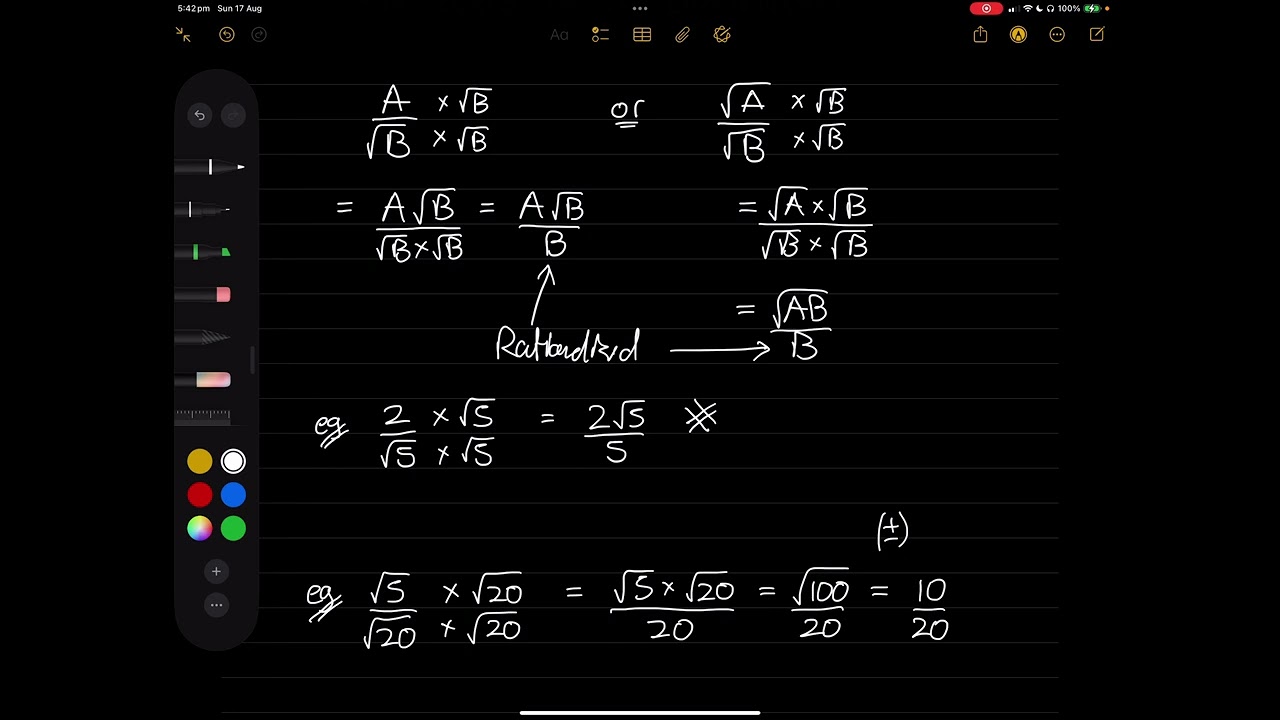 5:42 pm Sun 17 Aug
100%
Aa
A × √B / √B × √B or √A × √B / √B × √B
= A√B / √B × √B = A√B / B = √A × √B / √B × √B
= √AB / B
Rationalized
eg 2 × √5 / √5 × √5 = 2√5 / 5
(±)
eg √5 × √20 / √20 × √20 = √5 × √20 / 20 = √100 / 20 = 10 / 20